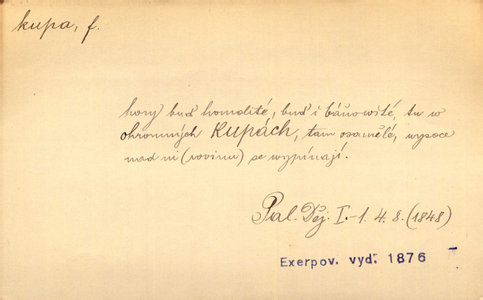 kupa, f.
hory buď homolité, buď i báňowité, tu w
ohromných kupách, tam osamělé, wysoce
nad ni (rovinu) se wypínají.
Pal. Děj. I.-1. 4. 8. (1848)
Exerpov. vyd. 1876